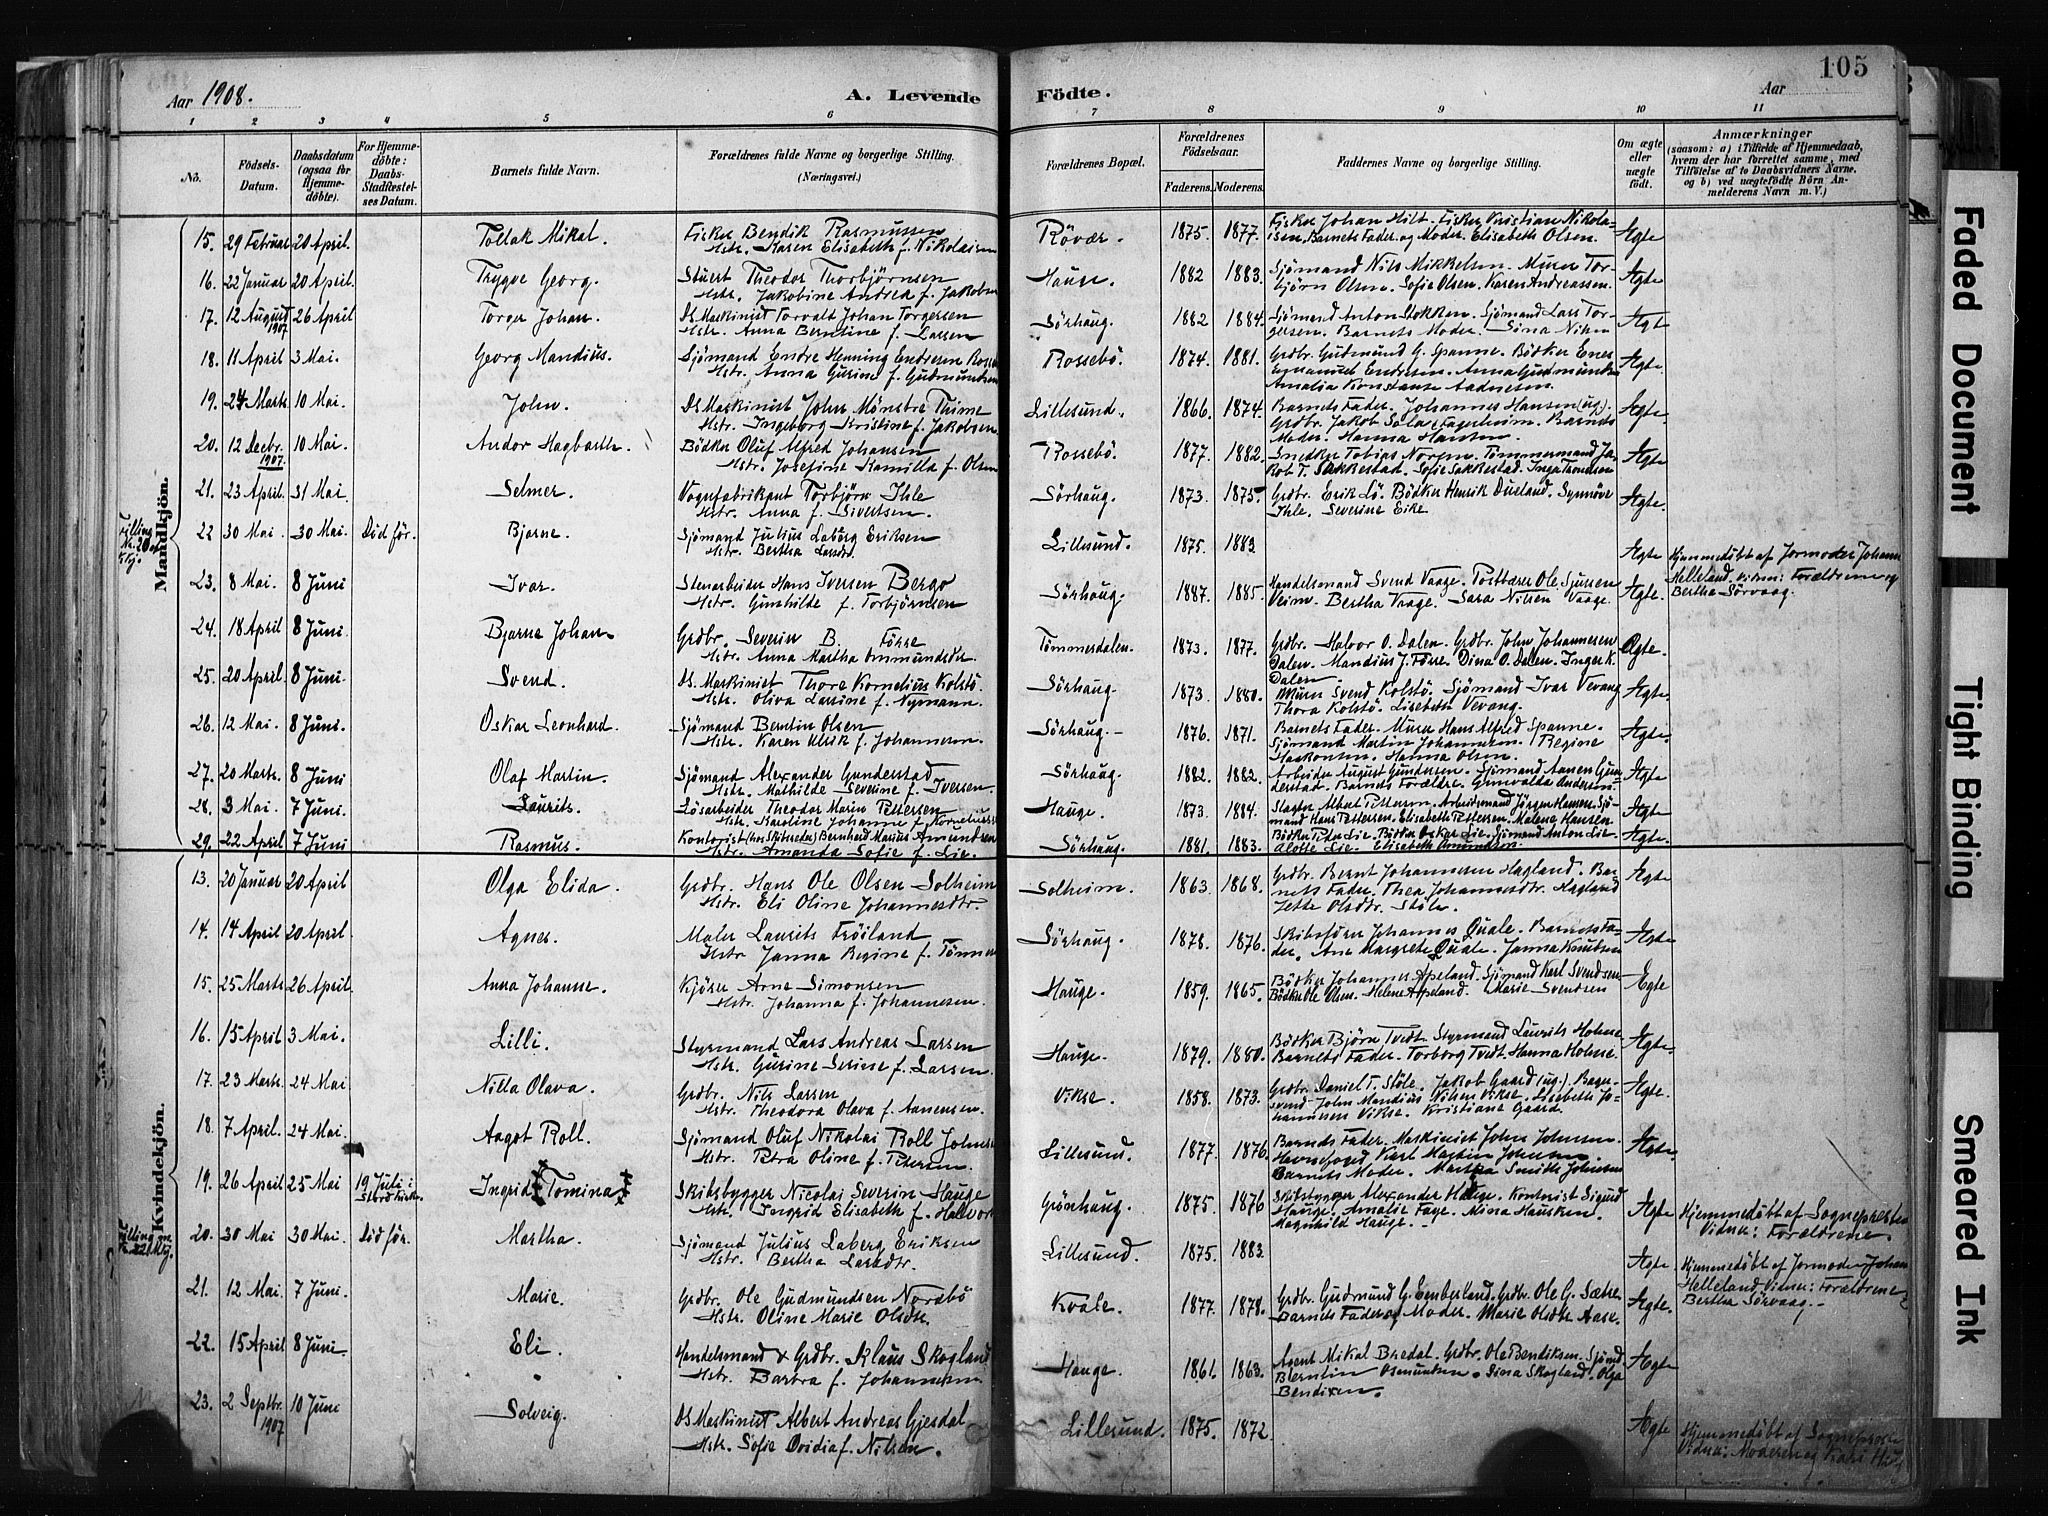 105
Aar 1908.
A. Levende Födte.
Aar
1 2 3 4 5 6 7 8 9 10 11
No.
Födsels-Datum.
Daabsdatum (ogsaa for Hjemmedöbte).
For Hjemmedöbte: Daabs-Stadfæstelses Datum.
Barnets fulde Navn.
Forældrenes fulde Navne og borgerlige Stilling.
(Næringsvei.)
Forældrenes Bopæl.
Forældrenes Födselsaar.
Faderens. Moderens.
Faddernes Navne og borgerlige Stilling.
Om ægte eller uægte födt.
Anmærkninger
(saasom: a) i Tilfælde af Hjemmedaab, hvem der har forrettet samme, med Tilföielse af to Daabsvidners Navne, og b) ved uægtefödte Börn Anmelderens Navn m. V.)
Mandkjön.
15. 29 Februar 20 April. Tollak Mikal. Fisker Bendik Rasmussen Hstr. Karen Elisabeth f. Nikolaisen Rövær. 1875. 1877. Fisker Johan Hilt. Fisker Kristian Nikolaisen. Barnets Fader og Moder. Elisabeth Olsen. Ægte
16. 22 Januar 20 April. Trygve Georg. Stuert Theodor Thorbjörnsen Hstr. Jakobine Andrea f. Jakobsen Hauge. 1882 1883. Sjömand Nils Mikkelsen. Murer Torbjörn Olsen. Sofie Olsen. Karen Andreassen. Ægte
17. 12 August 1907 26 April Torger Johan. DS. Maskinist Torvalt Johan Torgersen Hstr. Anna Berntine f. Larsen Sörhaug. 1882 1884. Sjömand Anton Stokken. Sjömand Lars Torgersen. Barnets Moder. Sina Ægt
18. 11 April 3 Mai. Georg Mandius. Sjömand Endre Henning Endresen Hstr. Anna Gurine f. Gudmundsen Rossebö. 1874. 1881. Grdbr. Gudmund G. Spanne. Bödker Enes Emanuel Endresen. Anna Gudmundsen Amalia Konstanse Ægte.
19. 24 Marts 10 Mai. John. DS. Maskinist John Mönstre Thime Hstr. Ingeborg Kristine f. Jakobsen Lillesund. 1866. 1874. Barnets Fader. Johannes Hansen (ug). Grdbr. Jakob Barnets Moder. Hanna Hansen. Ægte.
20. 12 Decbr. 1907. 10 Mai. Andor Hagbarth. Bödker Oluf Alfred Johansen Hstr. Josefine Kamilla f. Olsen Rossebö. 1877. 1882. Snedker Tobias Tömmermand Jakob T. Sakkestad. Sofie Sakkestad. Inga Ægte.
21. 23 April. 31 Mai. Selmer. Vognfabrikant Torbjörn Ihle Hstr. Anna f. Sivertsen. Sörhaug. 1873. 1875. Grdbr. Erik Lö. Bödker Henrik Dueland. Synnöve Ihle. Severine Eike Ægte.
Tvilling Nr. 20 af Kvkj.
22 30 Mai. 30 Mai. Död för. Bjarne. Sjömand Julius Laberg Eriksen Hstr. Bertha Larsdtr. Lillesund. 1875. 1883 Ægte Hjemmedöbt af Jormoder Johanne Helleland. Vidner: Forældrene og Bertha Sörvaag.
23. 8 Mai. 8 Juni Ivar. Stenarbeider Hans Iversen Bergo Hstr. Gunhilde f. Torbjörnsen Sörhaug. 1887. 1885. Handelsmand Svend Vaage. Postbærer Ole Sjursen Veim. Bertha Vaage. Sara Nilsen Vaage. Ægte.
24. 18 April 8 Juni. Bjarne Johan. Grdbr. Severin B. Förre Hstr. Anna Martha Ommundsdtr. Tömmerdalen. 1873. 1877. Grdbr. Halvor O. Dalen. Grdbr. John Johannesen Dalen. Mandius J. Förre. Dina O. Dalen. Inger K. Dalen. Ægte.
25. 20 April. 8 Juni. Svend. DS. Maskinist Thore Kornelius Kolstö. Hstr. Oliva Larsine f. Nymann. Sörhaug. 1873. 1880. Murer Svend Kolstö. Sjömand Ivar Vevang Thora Kolstö. Lisebeth Vevang. Ægte.
26. 12 Mai. 8 Juni. Oskar Leonhard. Sjömand Berntin Olsen Hstr. Karen Ulrik f. Johannesen. Sörhaug. 1876. 1871. Barnets Fader. Murer Hans Alfred Spanne. Sjömand Martin Johannesen. Regine Haakonsen. Hanna Olsen. Ægte.
27. 20 Marts. 8 Juni Olaf Martin. Sjömand Alexander Gunderstad Hstr. Mathilde Severine f. Iversen. Sörhaug. 1882. 1882. Arbeider August Gundersen. Sjömand Aanen Gunderstad. Barnets Forældre. Gunvalda Andersen. Ægte
28. 3 Mai. 7 Juni. Laurits. Lösarbeider Theodor Marius Pettersen Hstr. Karoline Johanne f. Korneliussen Hauge. 1873. 1884. Slagter Albert Pettersen. Arbeidsmand Jörgen Hansen. Sjömand Hans Pettersen. Elisabeth Pettersen. Malene Hansen Ægte
29. 22 April 7 Juni Rasmus. Kontorist (hos Skibsreder) Bernhard Marius Amundsen Hstr. Amanda Sofie f. Lie. Sörhaug. 1881. 1883. Bödker Peder Lie. Bödker Oskar Lie. Sjömand Anton Lie. Alotte Lie. Elisabeth Amundsen. Ægte.
Kvindekjön.
13. 20 Januar 20 April Olga Elida. Grdbr. Hans Ole Olsen Solheim Hstr. Eli Oline Johannesdtr. Solheim. 1863. 1868. Grdbr. Bernt Johannesen Hagland. Barnets Fader. Thea Johannesdtr. Hagland Jette Olsdtr. Stöle. Ægte
14. 14 April 20 April. Agnes. Maler Laurits Fröiland Hstr Janna Regine f. Tönnes Sörhaug. 1878. 1876. Skibsförer Johannes Quale. Barnets Fader. Ane Margrete Quale. Janna Knutsen Ægte
15. 25 Marts 26 April. Anna Johanne. Kjörer Arne Simonsen Hstr. Johanna f. Johannesen. Hauge. 1859. 1865. Bödker Johannes Apeland. Sjömand Karl Svendsen Bödker Ole Olsen. Helene Apeland. Marie Svendsen Ægte
16. 15 April 3 Mai. Lilli. Styrmand Lars Andreas Larsen Hstr. Gurine Serine f. Larsen. Hauge. 1879. 1880. Bödker Björn Tvedt. Styrmand Laurits Holme Barnets Fader. Torborg Tvedt. Hanna Holme. Ægte.
17. 23 Marts. 24 Mai Nilla Olava. Grdbr. Nils Larsen Hstr. Theodora Olava f. Aanensen. Vikse. 1858. 1873. Grdbr. Daniel T. Stöle. Jakob Gaard (ug). John Mandius Nilsen Vikse. Lisebeth Johannesen Vikse. Kristiane Gaard. Ægte.
18. 7 April. 24 Mai. Aagot Roll. Sjömand Oluf Nikolai Roll Johnsen Hstr. Petra Oline f. Petersen. Lillesund. 1877. 1876. Barnets Fader. Maskinist John Johnsen. Havnefoged Karl Martin Johnsen. Barnets Moder. Martha Smith Johnsen Ægte.
19. 26 April 25 Mai 19 Juli i Stordkirke. Ingrid Tomina Skibsbygger Nicolai Severin Hauge Hstr. Ingrid Elisabeth f. Halvor Grönhaug. 1875. 1876 Skibsbygger Alexander Hauge. Kontorist Sigurd Hauge. Amalie Faye. Mina Hausken. Magnhild Hauge. Ægte Hjemmedöbt af Sogneprest Vidne: Forældrene.
Tvilling m. Nr. 22 Mkj.
20. 30 Mai 30 Mai. Död för. Martha. Sjömand Julius Laberg Eriksen Hstr. Bertha Larsdtr. Lillesund. 1875. 1883. Ægte Hjemmedöbt af Jormoder Johan Helleland. Vidner: Forældrene Bertha Sörvaag.
21. 12 Mai. 7 Juni. Marie. Grdbr. Ole Gudmundsen Nordbö Hstr. Oline Marie Olsdtr. Kvale. 1877. 1878. Grdbr. Gudmund G. Emberland. Grdbr. Ole G. Sætre. Barnets Fader og Moder. Marie Olsdtr Aase. Ægte.
22. 15 April 8 Juni. Eli. Handelsmand & Grdbr. Klaus Skogland Hstr. Barbra f. Johannesen Hauge. 1861. 1863. Agent Mikal Bredal. Grdbr. Ole Bendiksen. Sjömd Berntin Osmundsen. Dina Skogland. Olga Bendixen. Ægte
23. 2 Septbr. 1907 10 Juni Solveig. DS Maskinist Albert Andreas Gjesdal Hstr. Sofie Ovidia f. Nilsen. Lillesund. 1875. 1872. Ægte Hjemmedöbt af Sogneprest Vidne: Moderen og Kari
Faded Document
Tight Binding
Smeared Ink